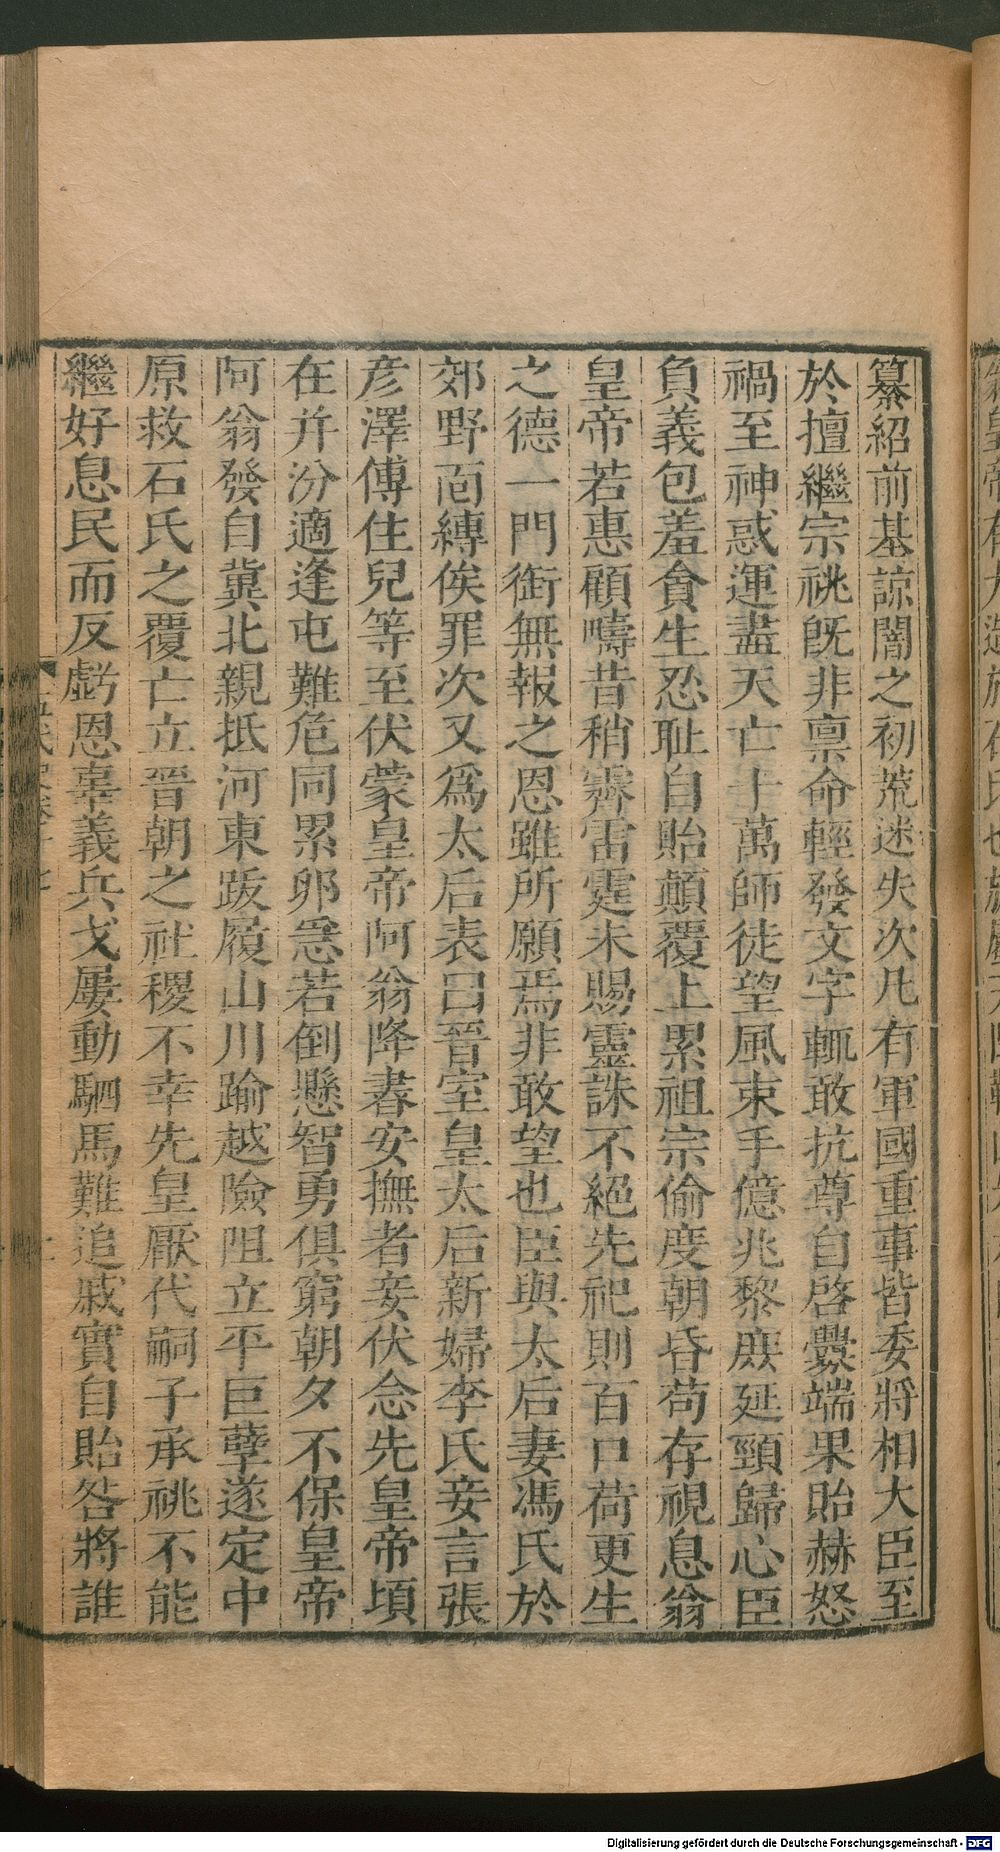 纂紹前基諒闇之初荒迷失次凡有軍國重事皆委將相大臣至
於擅繼宗祧旣非禀命輕發文字輒敢抗尊自啓釁端果貽赫怒
禍至神惑運盡天亡十萬師徒望風束手億兆黎庶延頸歸心臣
負義包羞貪生忍耻自貽顛覆上累祖宗偷度朝昏苟存視息翁
皇帝若惠顧疇昔稍霽雷霆未賜靈誅不絕先祀則百口荷更生
之德一門銜無報之恩雖所願焉非敢望也臣與太后妻馮氏於
郊野靣縛俟罪次又爲太后表曰晉室皇太后新婦李氏妾言張
彥澤傅住兒等至伏蒙皇帝阿翁降書安撫者妾伏念先皇帝頃
在并汾適逢屯難危同累卵急若倒懸智勇俱窮朝夕不保皇帝
阿翁發自冀北親抵河東跋履山川踰越險阻立平巨孽遂定中
原救石氏之覆亡立晉朝之社稷不幸先皇厭代嗣子承祧不能
繼好息民而反虧恩辜義兵戈屢動駟馬難追戚實自貽咎將誰
Digitalisierung gefördert durch die Deutsche Forschungsgemeinschaft - DFG